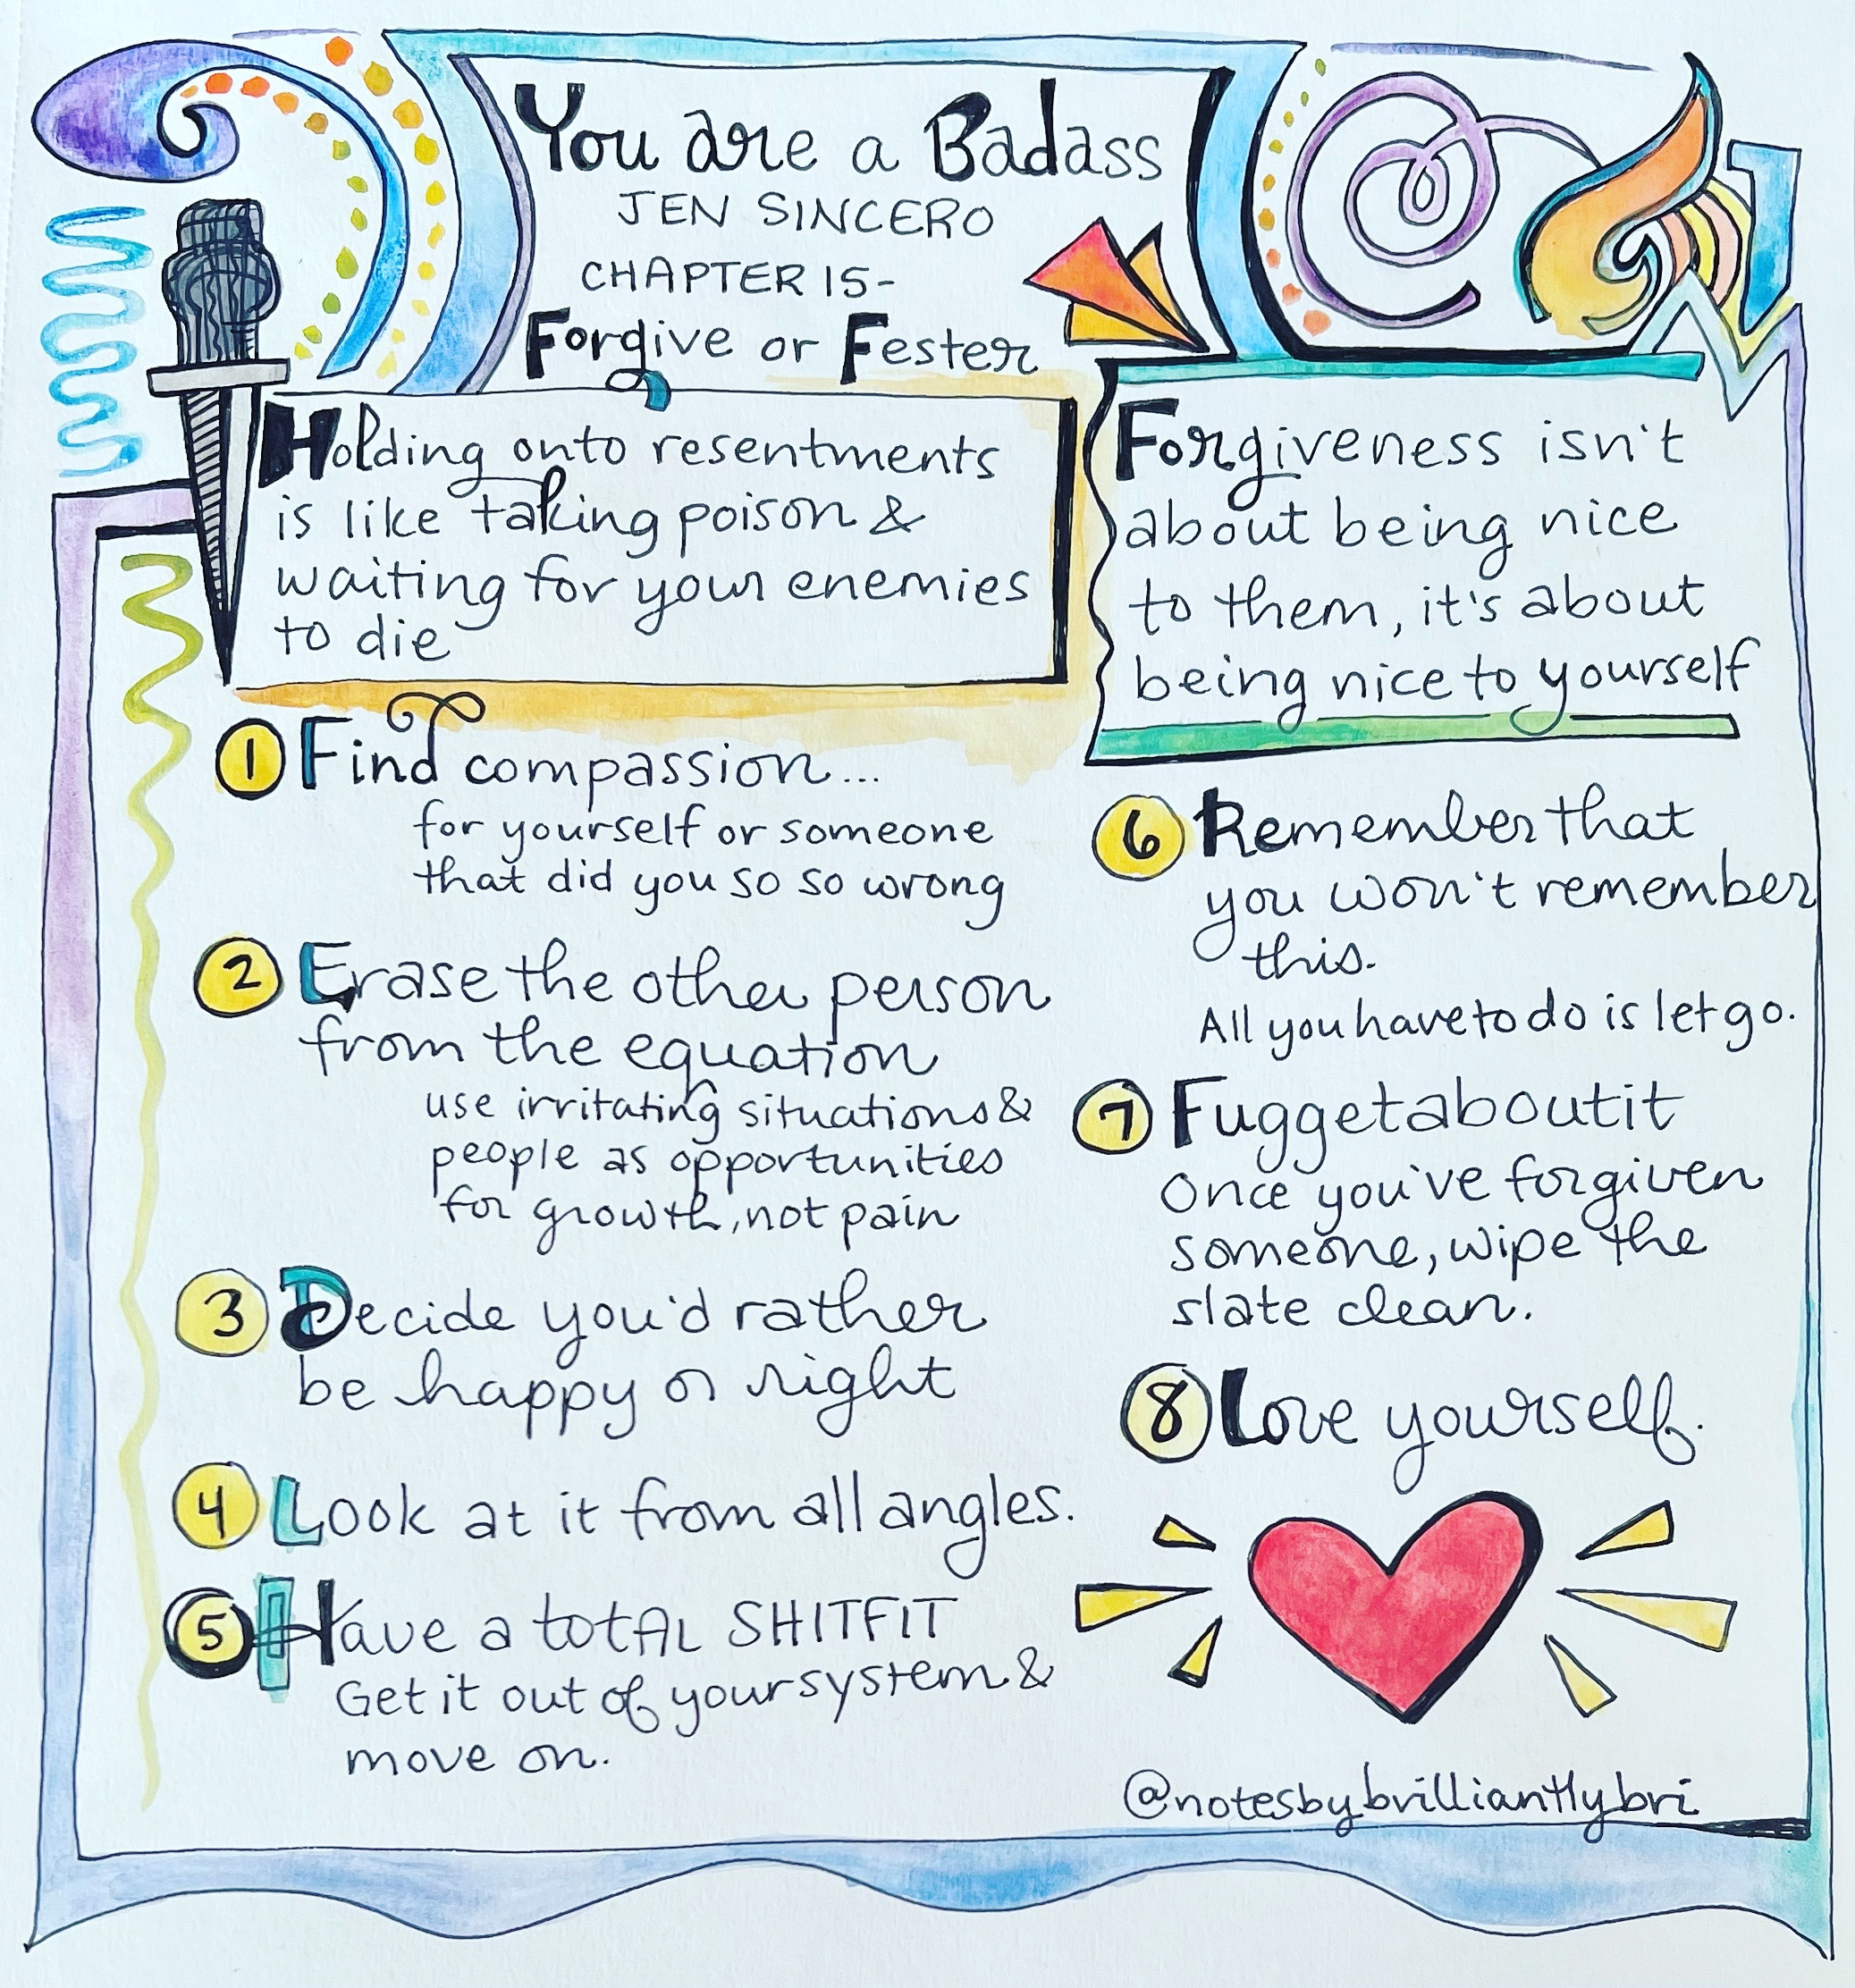 You are a Badass
JEN SINCERO
CHAPTER 15-
Forgive or Fester
Holding onto resentments
is like taking poison &
waiting for your enemies
to die
Forgiveness isn't
about being nice
to them, it's about
being nice to yourself
1 Find compassion...
for yourself or someone
that did you so so wrong
2 Erase the other person
from the equation
use irritating situations &
people as opportunities
for growth, not pain
3 Decide you'd rather
be happy or right
4 Look at it from all angles.
5 Have a totAL SHITFIT
Get it out of your system &
move on.
6 Remember that
you won't remember
this.
All you have to do is let go.
7 Fuggetaboutit
Once you've forgiven
someone, wipe the
slate clean.
8 Love yourself.
@notesbybrilliantlybri